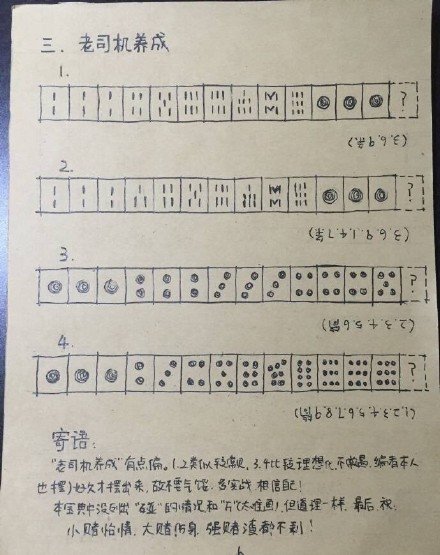 三. 老司机养成
1.
?
(3.6.9条)
2.
?
(3.6.9.1.4.7条)
3.
?
(2.3.4.5.6筒)
4.
?
(1.2.3.4.5.6.7.8.9筒)
寄语:
"老司机养成"有点偏。1.2类似较常规, 3.4比较理想化, 不常遇, 编者本人
也摆了好久才摆出来, 故不要气馁, 多实战, 相信自己!
本宝典中没列出"碰"的情况和"万"(太难画), 但道理一样, 最后, 祝:
小赌怡情, 大赌伤身, 强赌渣都不剩!
6